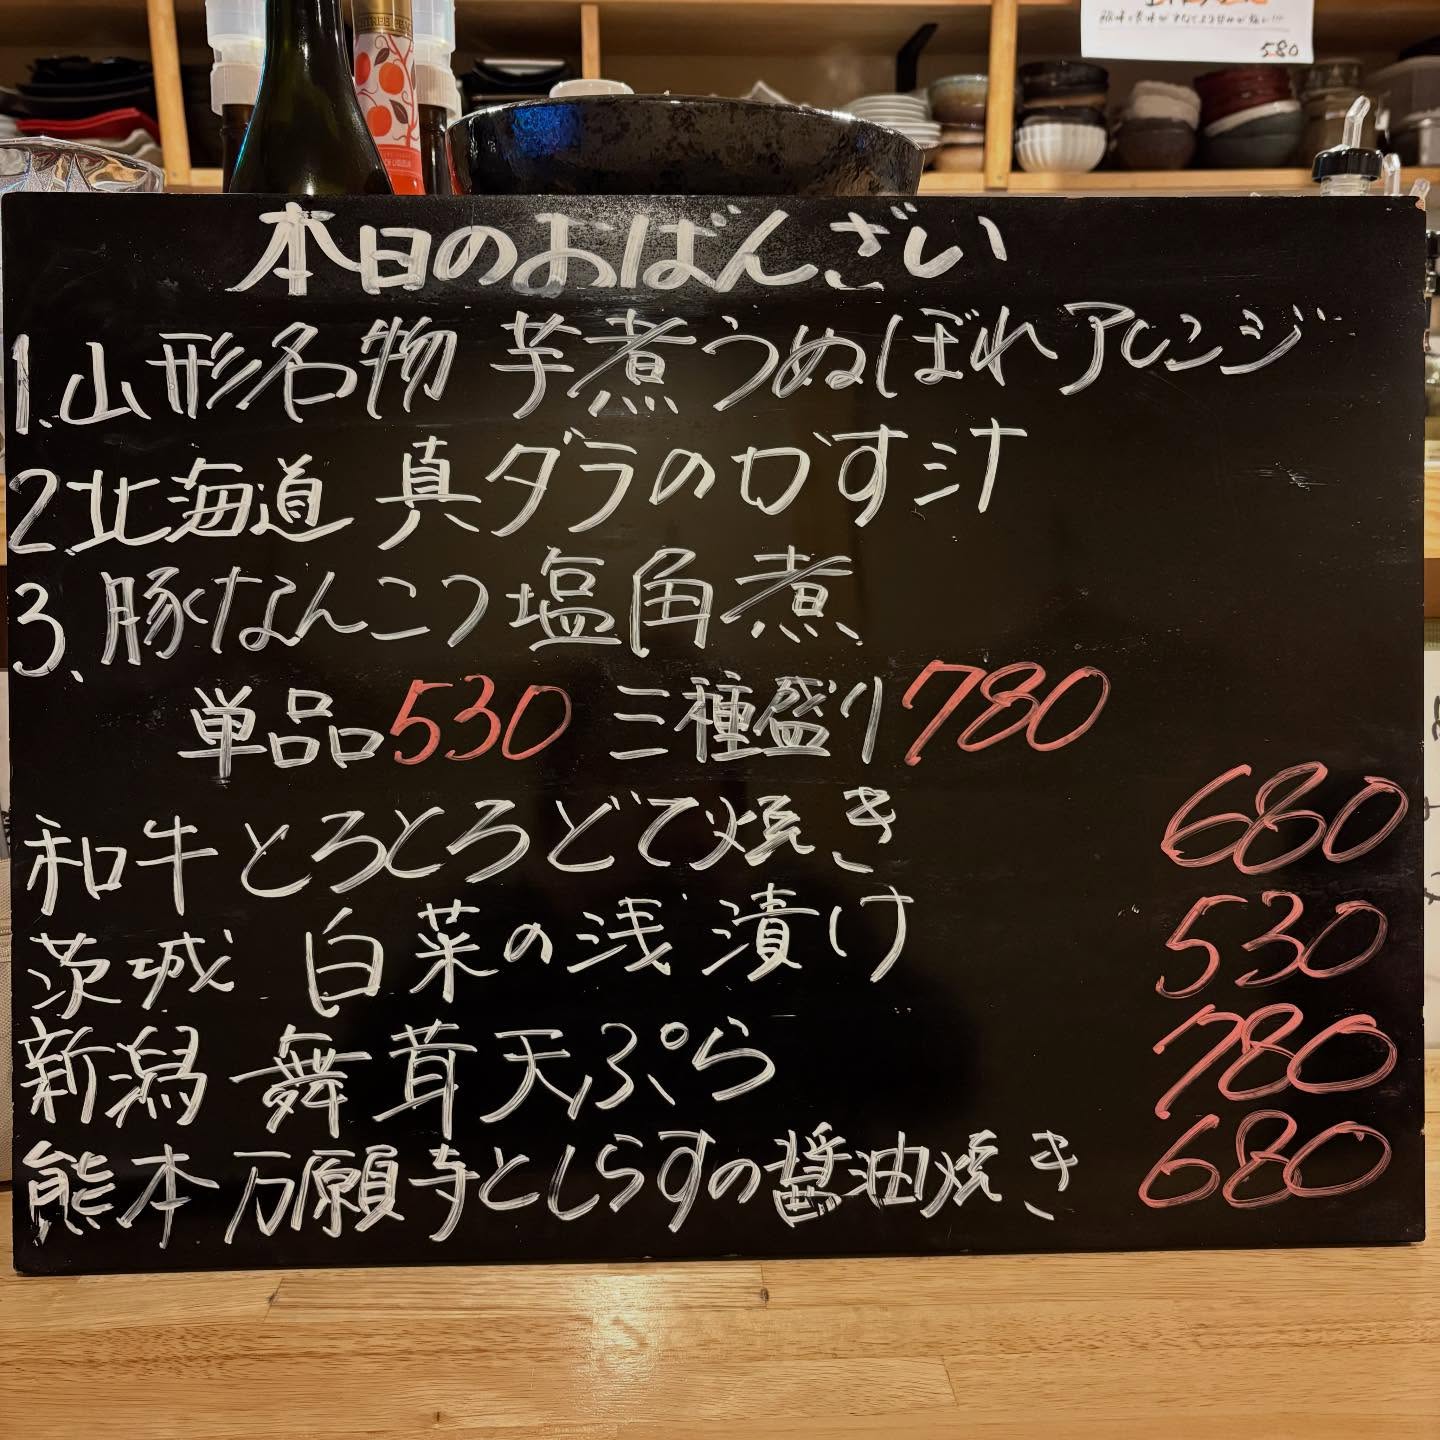 580
本日のおばんざい
1.山形名物 芋煮うぬぼれアレンジ
2.北海道 真ダラのかす汁
3.豚なんこつ塩角煮
単品530 三種盛り780
和牛とろとろどて焼き 680
茨城 白菜の浅漬け 530
新潟 舞茸天ぷら 780
熊本 万願寺としらすの醤油焼き 680